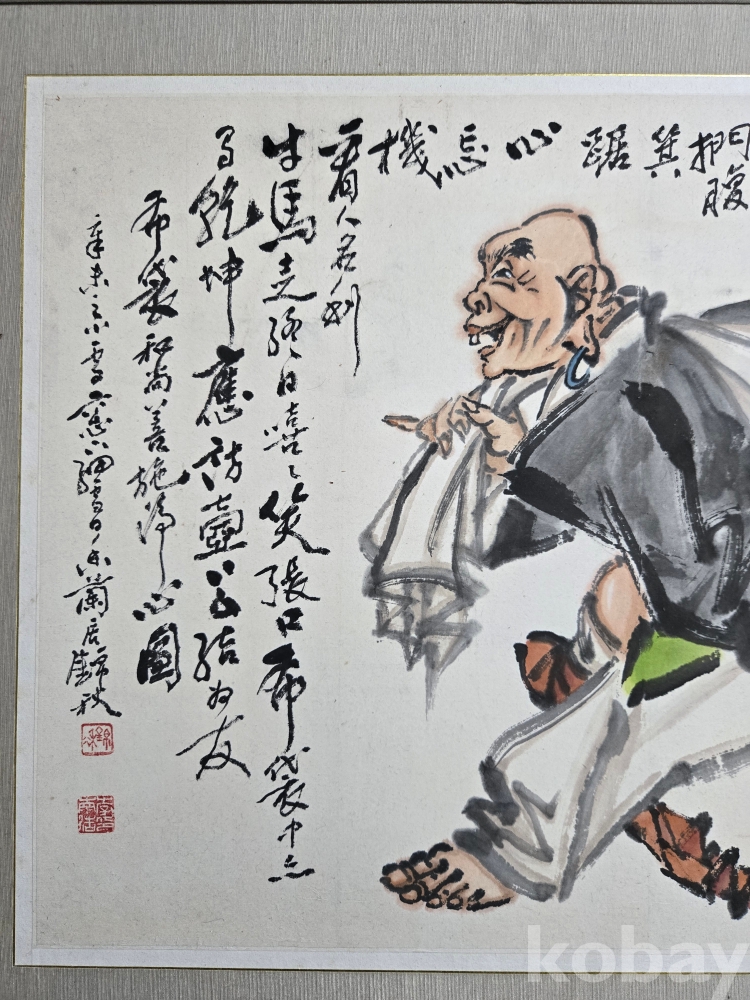 捫腹
箕踞
心
忘
機
看人名利
牛馬走終日嘻々笑張口布袋中亦
有乾坤應訪壺公結為友
布袋和尚善施淨心圖
辛未之小雪 雪日 蘭居 錦秋